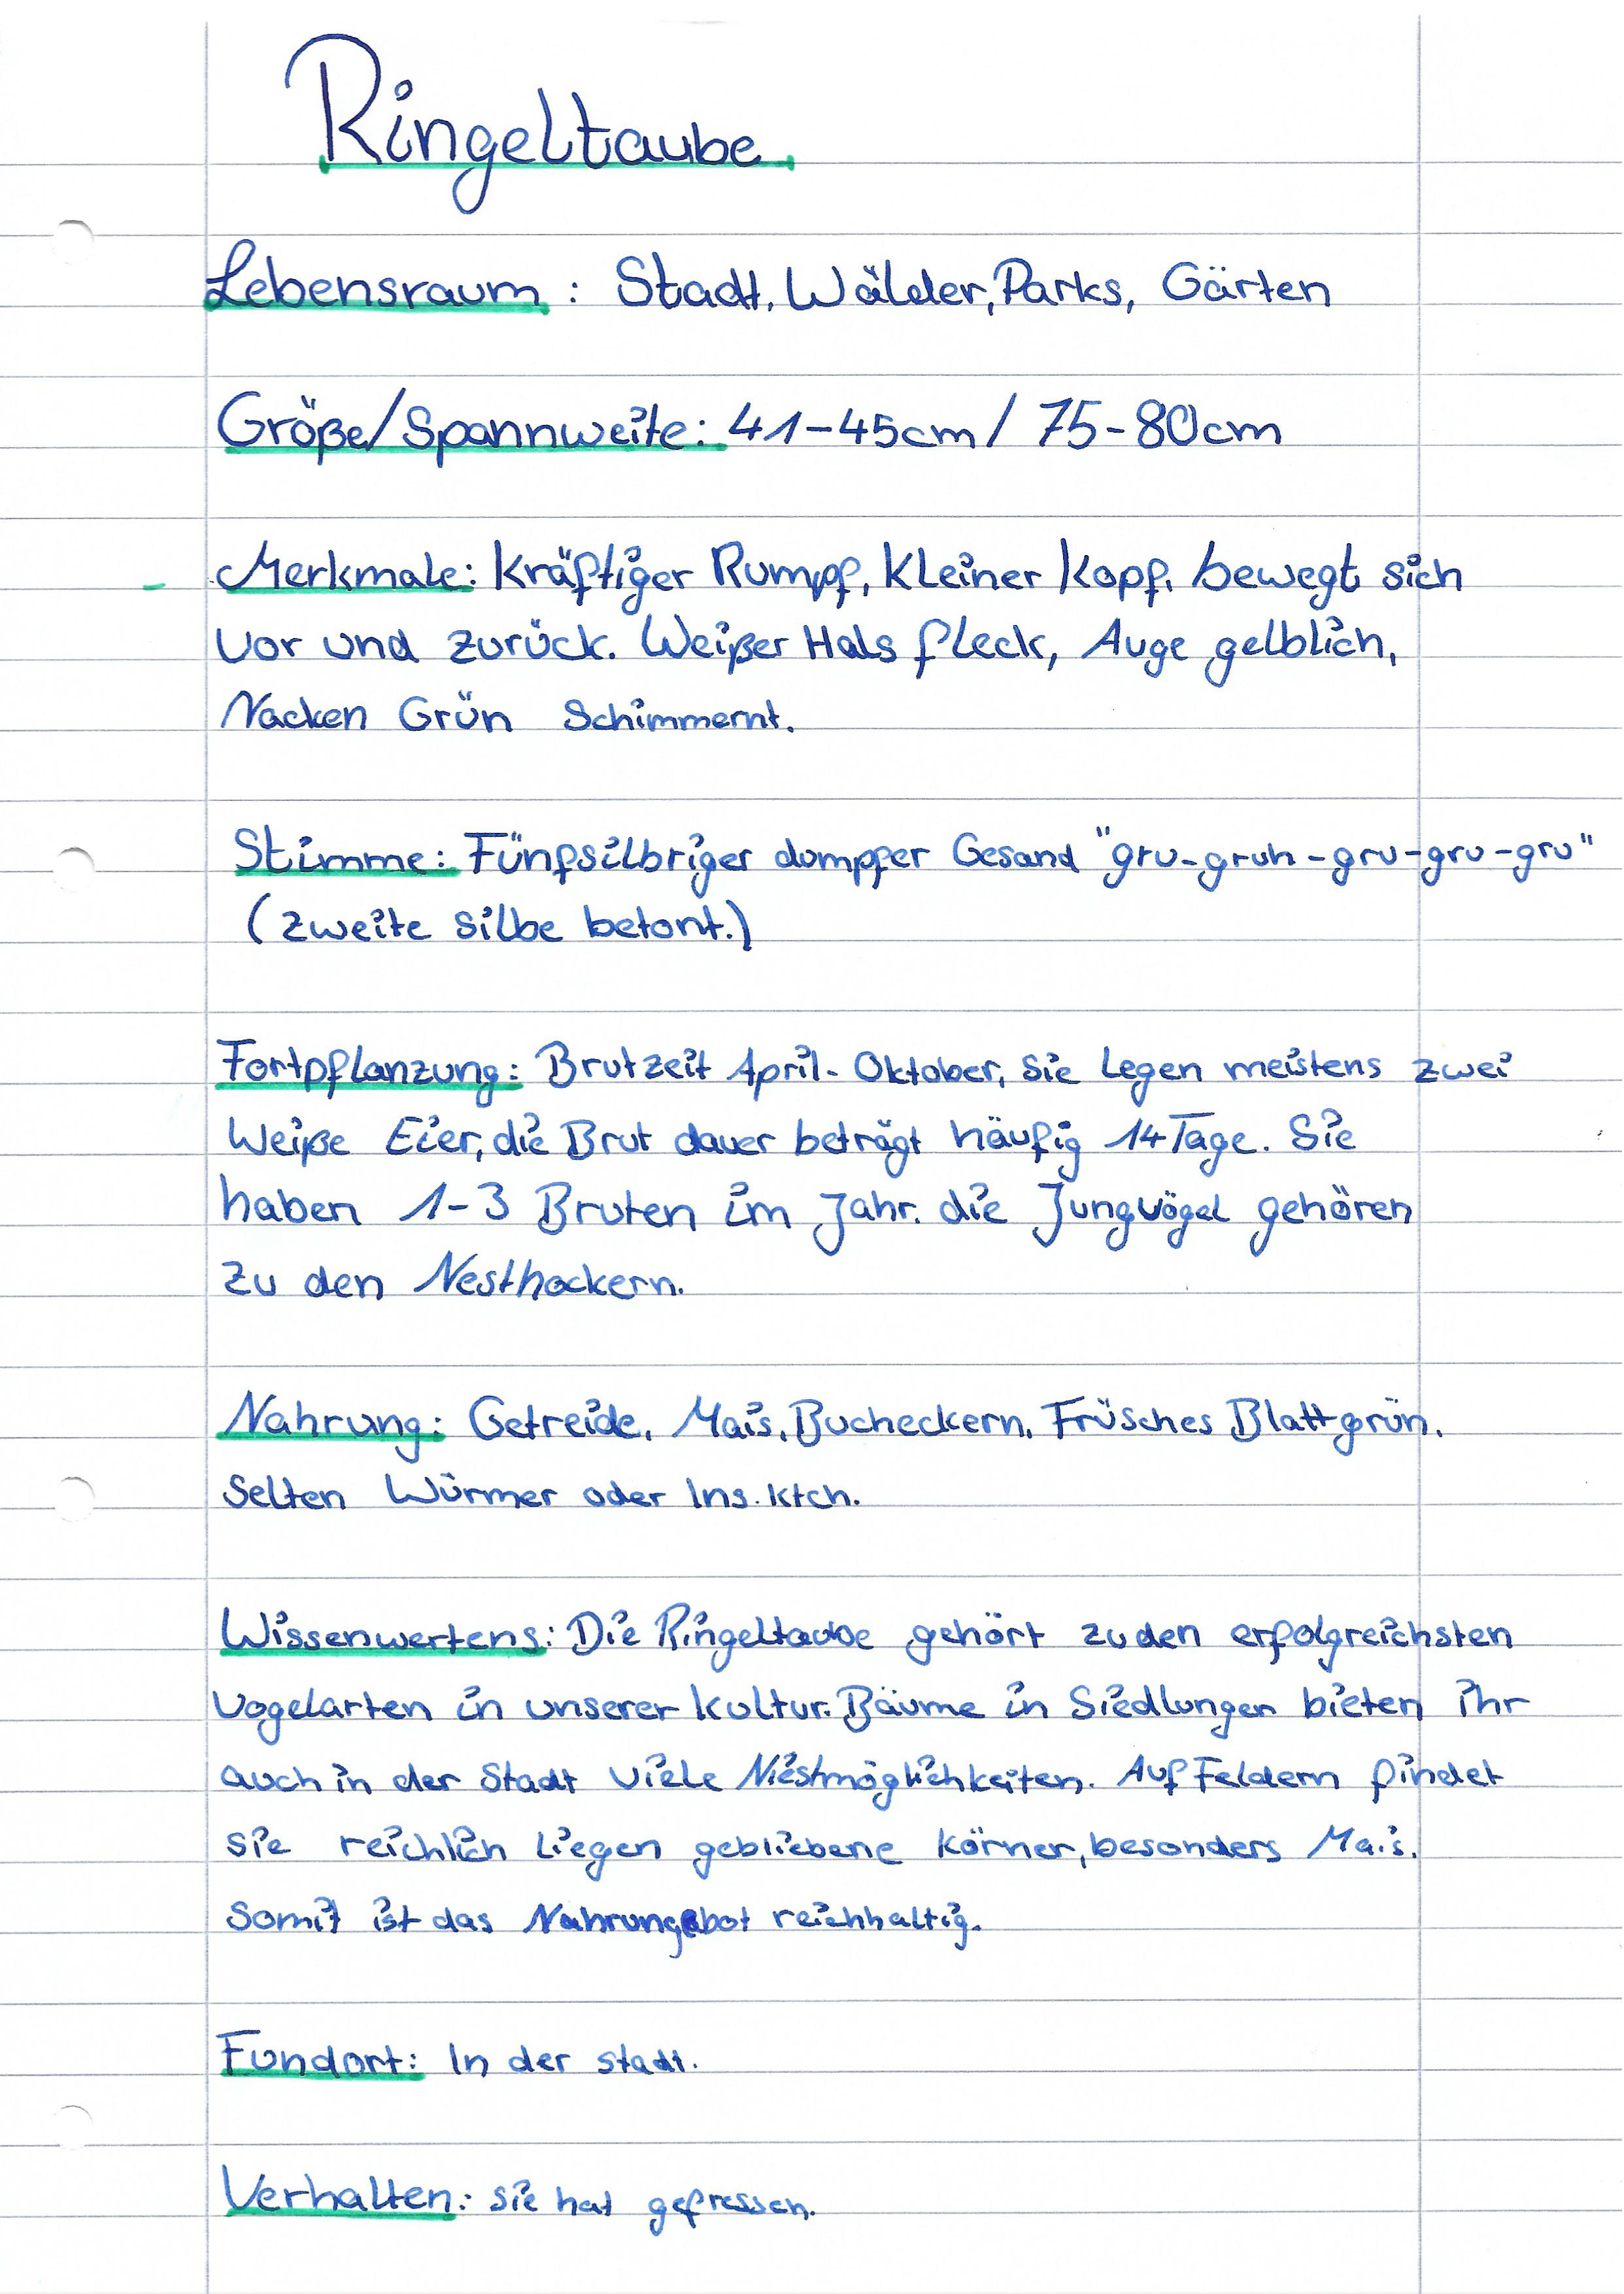 Ringeltaube
Lebensraum : Stadt, Wälder, Parks, Gärten
Größe/Spannweite: 41-45cm / 75-80cm
Merkmale: Kräftiger Rumpf, Kleiner Kopf, bewegt sich
vor und zurück. Weißer Hals fleck, Auge gelblich,
Nacken Grün Schimmernt.
Stimme: Fünfsilbriger dumpfer Gesand "gru-gruh-gru-gru-gru"
(zweite silbe betont.)
Fortpflanzung: Brutzeit April- Oktober, Sie Legen meistens zwei
Weiße Eier, die Brut dauer beträgt häufig 14 Tage. Sie
haben 1-3 Bruten im Jahr. die Jungvögel gehören
zu den Nesthockern.
Nahrung: Getreide, Mais, Bucheckern, Früsches Blattgrün,
Selten Würmer oder
Wissenwertens: Die Ringeltaube gehört zu den erfolgreichsten
Vogelarten in unserer Kultur. Bäume in Siedlungen bieten ihr
auch in der Stadt viele Niestmöglichkeiten. Auf Feldern findet
sie reichlich Liegen gebliebene Körner, besonders Mais.
Somit ist das reichhaltig.
Fundort: In der stadt.
Verhalten: sie hat gefressen.